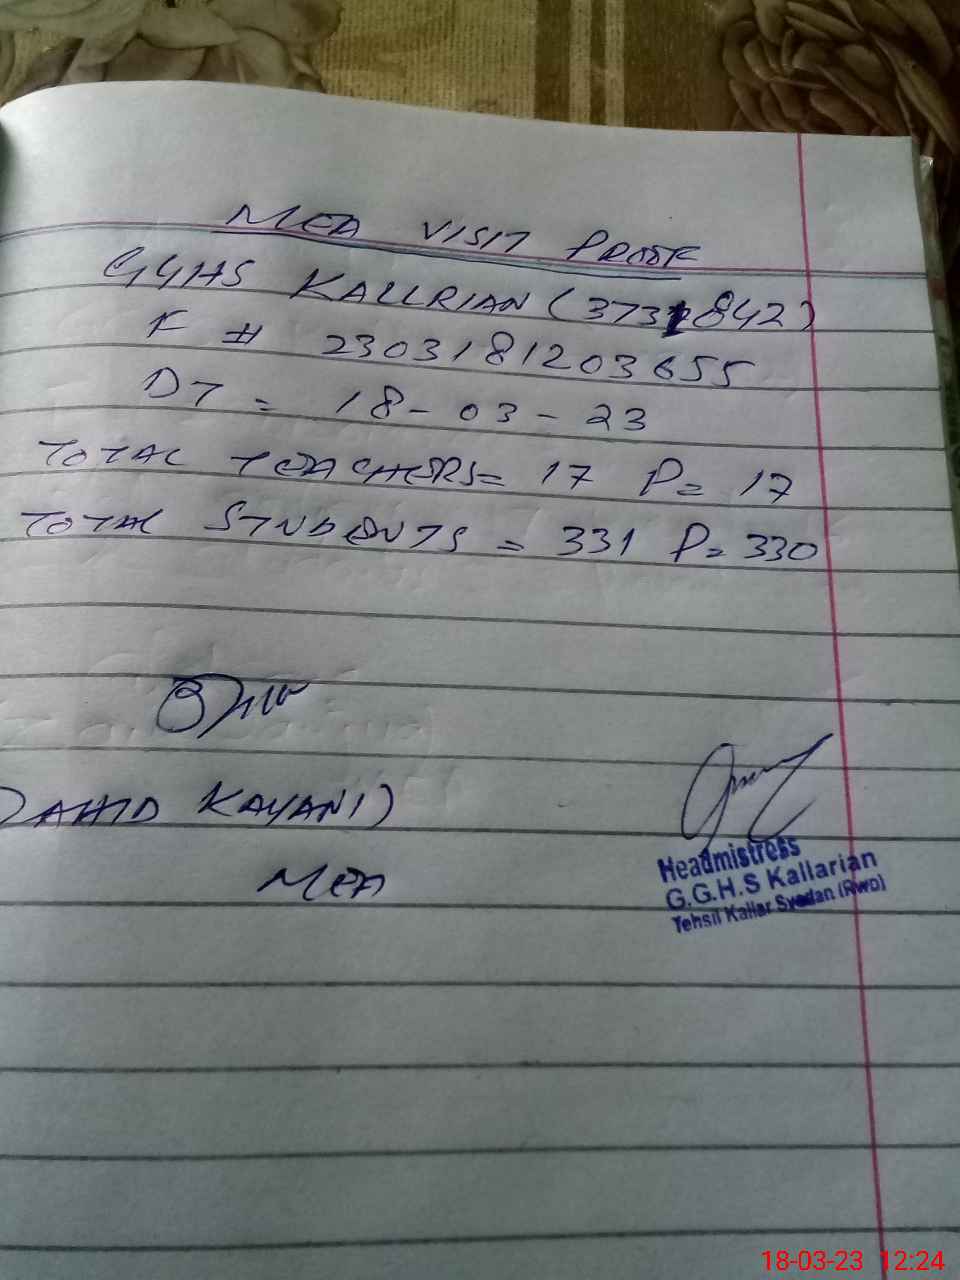 MEA VISIT PROOF
GGHS KALLRIAN (3731842)
F # 2303181203655
DT = 18-03-23
TOTAL TEACHERS = 17 P= 17
TOTAL STUDENTS = 331 P= 330
KAYANI)
MEA
Headmistress
G.G.H.S Kallarian
Tehsil Kallar Syedan (RWD)
18-03-23 12:24